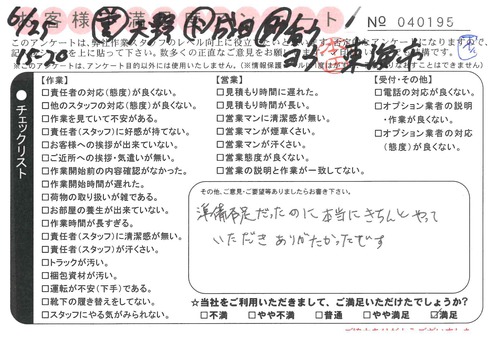 お客様満足
ト
No 040195
6/25
15:20
このアンケートは、弊社作業スタッフのレベル向上に役立
チェックリスト
【作業】
□責任者の対応(態度)が良くない。
□他のスタッフの対応(態度)が良くない。
□作業を見ていて不安がある。
□責任者(スタッフ)に好感が持てない。
□お客様への挨拶が出来ていない。
□ご近所への挨拶・気遣いが無い。
□作業開始前の内容確認がなかった。
□作業開始時間が遅れた。
□荷物の取り扱いが雑である。
□お部屋の養生が出来ていない。
□作業時間が長すぎる。
□責任者(スタッフ)に清潔感が無い。
□責任者(スタッフ)が汗くさい。
□トラックが汚い。
□梱包資材が汚い。
□運転が不安(下手)である。
□靴下の履き替えをしてない。
□スタッフにやる気がみられない。
【営業】
□見積もり時間に遅れた。
□見積もり時間が長い。
□営業マンに清潔感が無い。
□営業マンが煙草くさい。
□営業マンが汗くさい。
□営業態度が良くない。
□営業の説明と作業が一致してない。
【受付・その他】
□電話の対応が良くない。
□オプション業者の説明
・作業が良くない。
□オプション業者の対応
(態度)が良くない。
その他、ご意見・ご要望等ありましたらお書き下さい。
準備不足だったのに本当にきちんとやって
いただきありがたかったです
☆当社をご利用いただきまして、ご満足いただけたでしょうか?
□不満 □やや不満 □普通 □やや満足 ☑満足